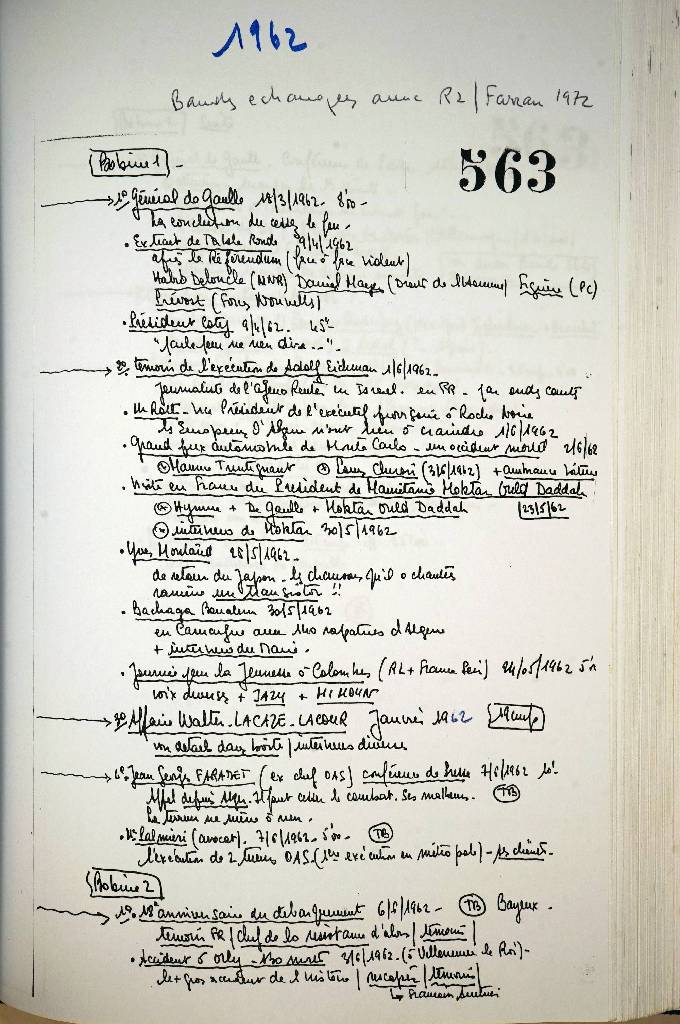 1962
Bandes echangées avec R2 / Farran 1972
Bobine 1 -
563
1º Général de Gaulle 18/3/1962 - 8'00 -
La conclusion du cessez le feu.
• Extrait de Table Ronde 9/4/1962
après le Référendum (face à face vident)
Habib Deloncle (UNR) Daniel Mayer (Droits de l'homme) Figuère (PC)
Prévost (Forces Nouvelles)
• Président Coty 9/4/62 - 45"
2º. témoin de l'exécution de Adolf Eichman 1/6/1962 -
Journaliste de l'Agence Reuter en Israel. en FR -
• Mr Rotte - Président de l'exécutif provisoire à Roche Noire
les Européens d'Algérie n'ont rien à craindre 1/6/1962
• Grand prix automobile de Monte Carlo - un accident mortel 2/6/62
Maurice Trintignant Louis Chiron (3/6/1962) + ambiance
• Visite en France du Président de Mauritanie Moktar Ould Daddah
Hymne + De Gaulle + Moktar Ould Daddah 23/5/62
interview de Moktar 30/5/1962
• Yves Montand 28/5/1962 -
de retour du Japon - les chansons qu'il a chantées
ramène un transistor !!
• Bachaga Boualem 30/5/1962
en Camargue avec 110 rapatriés d'Algérie
+ interview du Maire.
• Journée pour la Jeunesse à Colombes (RL + France Soir) 24/05/1962 5'
voix diverses + JAZY + MIMOUN
3º Affaire Walter - LACAZE - LACOUR Janvier 1962
voir détail dans boîte / interviews diverses
4º. Jean Georges FARADET (ex chef OAS) conférence de Presse 7/6/1962 10'-
Appel depuis Alger. Il faut cesser le combat. Ses malheurs. TB
La terreur ne mène à rien.
• Me Palmieri (avocat). 7/6/1962 - 5'00 - TB
l'exécution de 2 tueurs OAS (1ère exécution en métropole) -
Bobine 2
1º. 18e anniversaire du débarquement 6/6/1962 - TB Bayeux -
témoin FR / Chef de la resistance d'alors / témoin /
• Accident à Orly - 130 morts 3/6/1962 - (à Villeneuve le Roi) -
le + gros accident de l'histoire / rescapés / témoins /